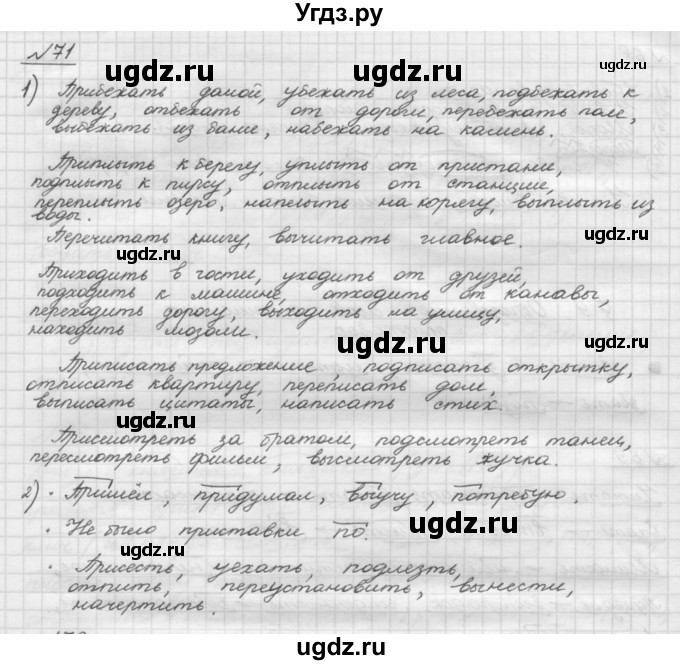 Угдз.ру
№71
1) Прибежать домой, убежать из леса, подбежать к
дереву, отбежать от дороги, перебежать поле,
выбежать из бани, набежать на камень.
Приплыть к берегу, уплыть от пристани,
подплыть к пирсу, отплыть от станции,
переплыть озеро, наплыть на корягу, выплыть из
воды.
Перечитать книгу, вычитать главное.
Приходить в гости, уходить от друзей,
подходить к машине, отходить от канавы,
переходить дорогу, выходить на улицу,
находить мозоли.
Приписать предложение, подписать открытку,
отписать квартиру, переписать дом,
выписать цитаты, написать стих.
Присмотреть за братом, подсмотреть танец,
пересмотреть фильм, высмотреть жучка.
2) • Пришёл, придумал, выучу, потребую.
• Не было приставки по.
• Присесть, уехать, подлезть,
отпить, переустановить, вынести,
начертить.
ugdz.ru
ugdz.ru
ugdz.ru
ugdz.ru
ugdz.ru
ugdz.ru
ugdz.ru
ugdz.ru
ugdz.ru
ugdz.ru
ugdz.ru
ugdz.ru